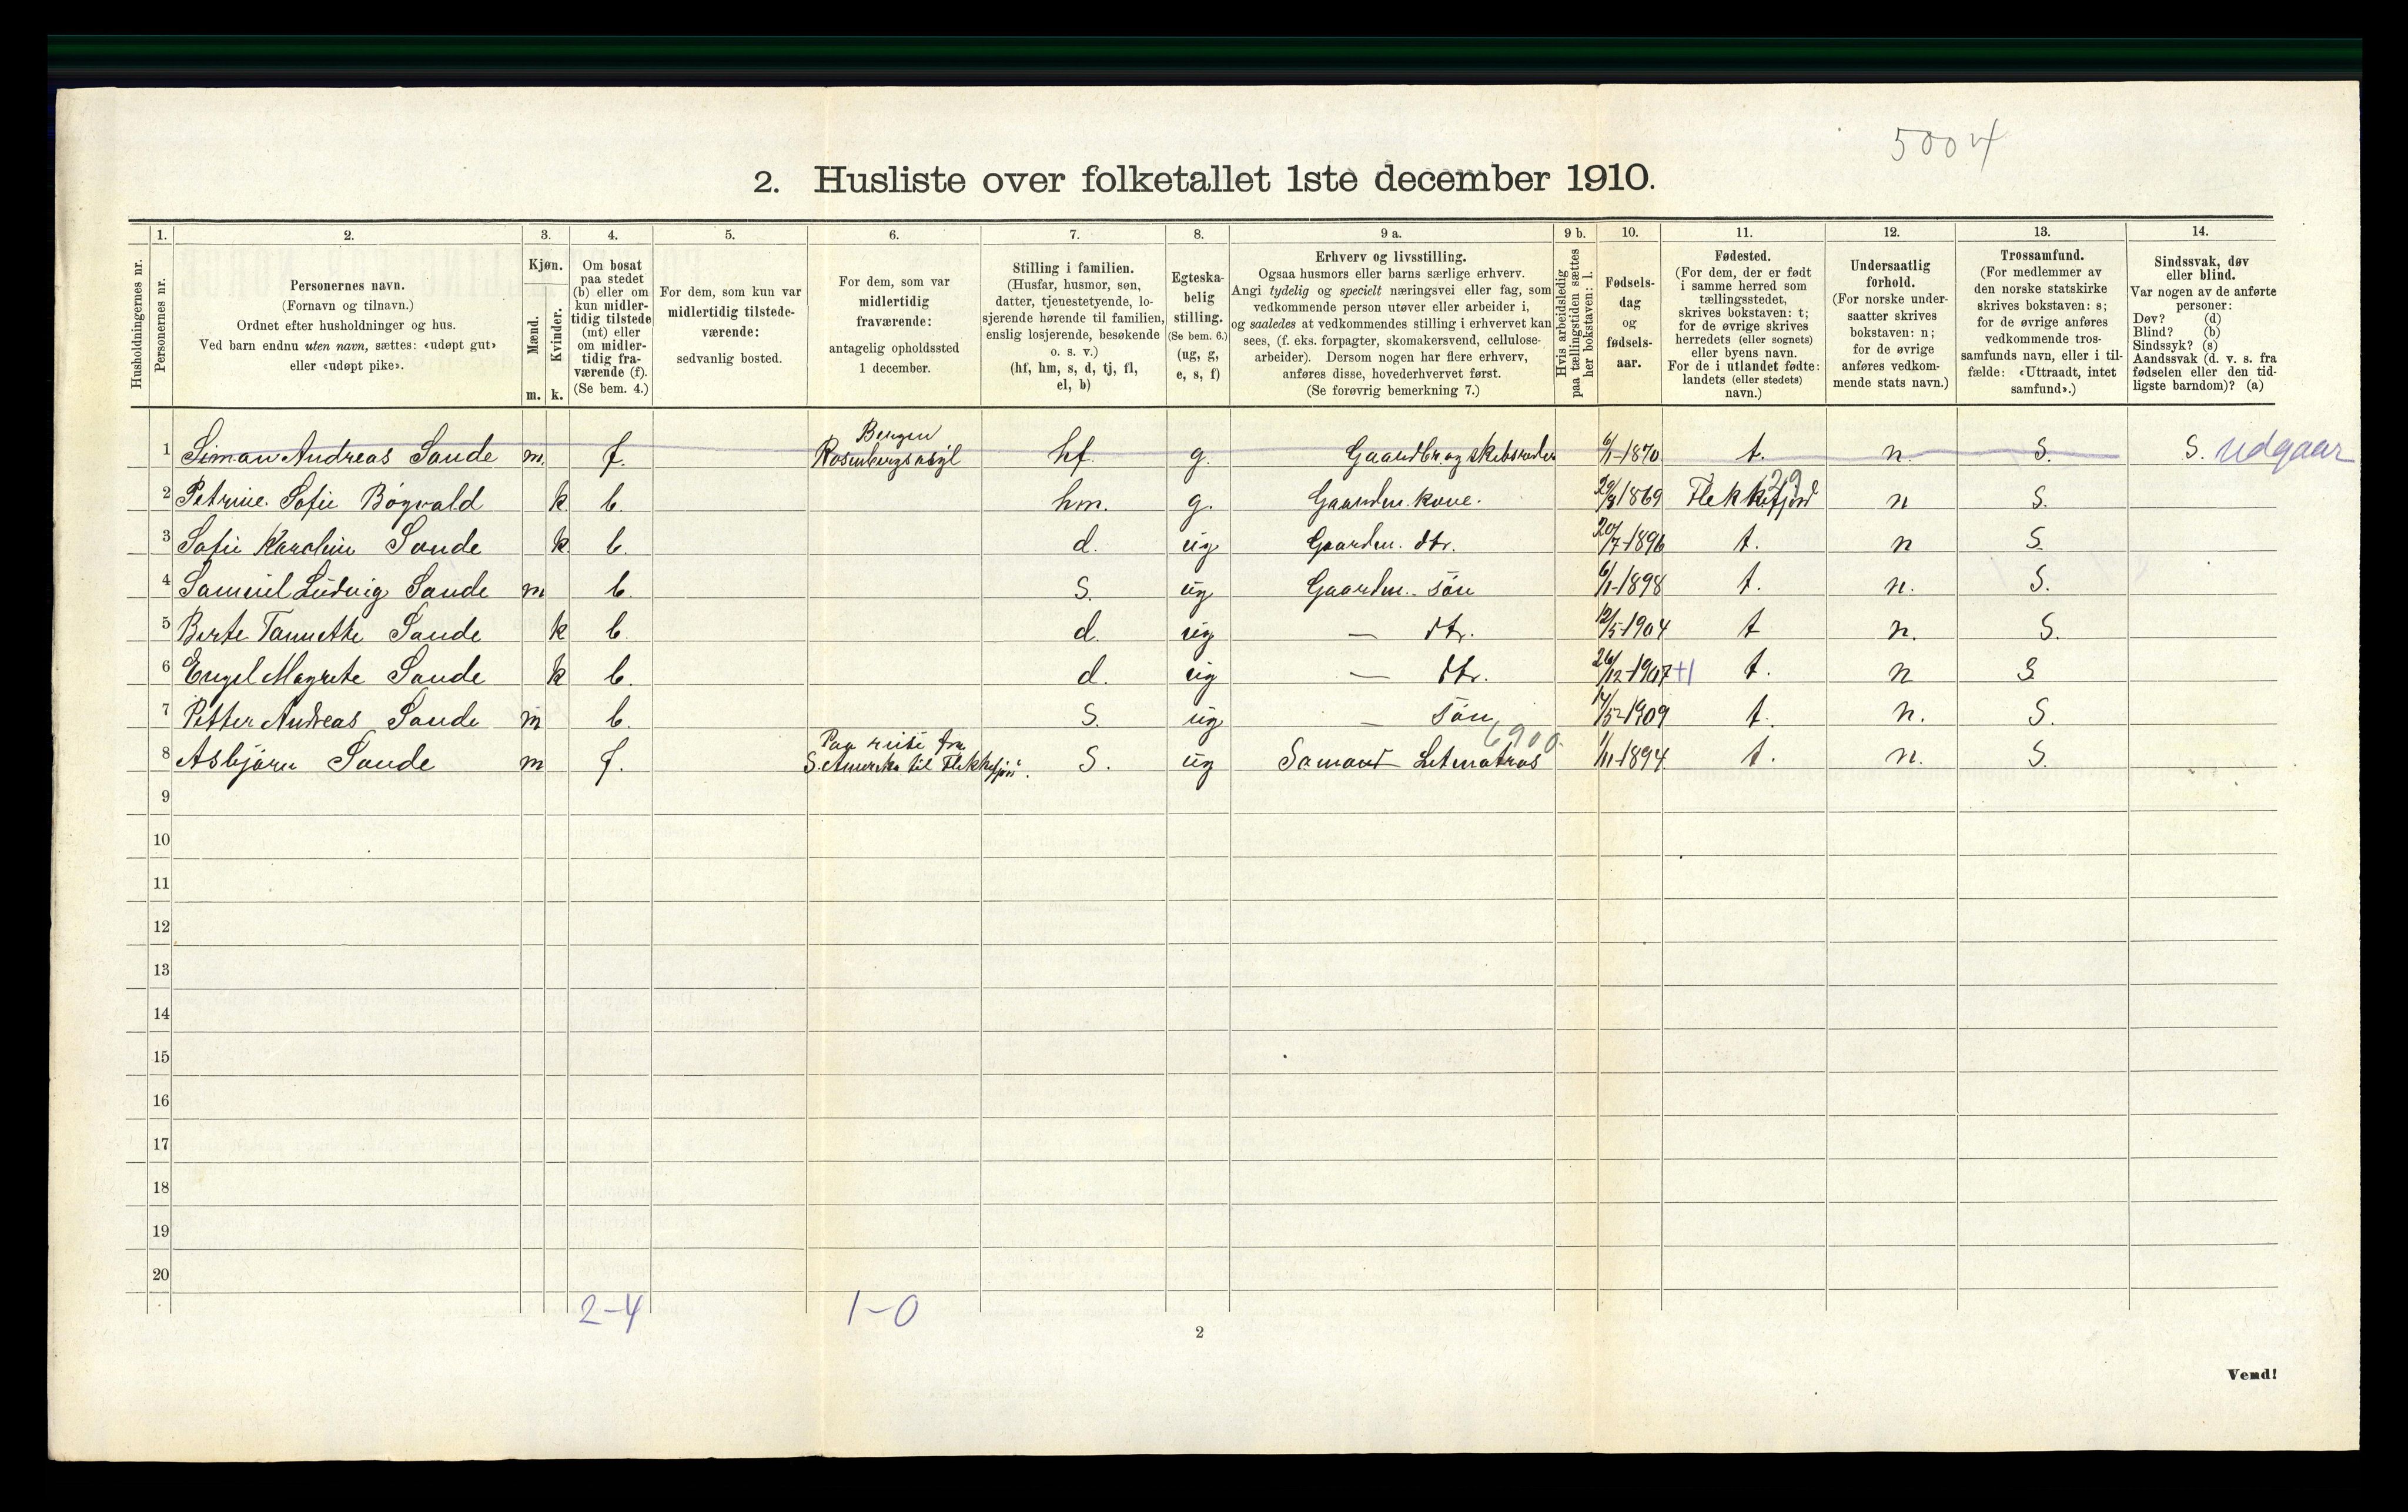 5004
2. Husliste over folketallet 1ste december 1910.
Husholdningernes nr.
1.
Personernes nr.
2.
Personernes navn.
(Fornavn og tilnavn.)
Ordnet efter husholdninger og hus.
Ved barn endnu uten navn, sættes: «udøpt gut»
eller «udøpt pike».
3.
Kjøn.
Mænd.
Kvinder.
m. k.
4.
Om bosat
paa stedet
(b) eller om
kun midler-
tidig tilstede
(mt) eller
om midler-
tidig fra-
værende (f).
(Se bem. 4.)
5.
For dem, som kun var
midlertidig tilstede-
værende:
sedvanlig bosted.
6.
For dem, som var
midlertidig
fraværende:
antagelig opholdssted
1 december.
7.
Stilling i familien.
(Husfar, husmor, søn,
datter, tjenestetyende, lo-
sjerende hørende til familien,
enslig losjerende, besøkende
o. s. v.)
(hf, hm, s, d, tj, fl,
el, b)
8.
Egteska-
belig
stilling.
(Se bem. 6.)
(ug, g,
e, s, f)
9 a.
Erhverv og livsstilling.
Ogsaa husmors eller barns særlige erhverv.
Angi tydelig og specielt næringsvei eller fag, som
vedkommende person utøver eller arbeider i,
og saaledes at vedkommendes stilling i erhvervet kan
sees, (f. eks. forpagter, skomakersvend, cellulose-
arbeider). Dersom nogen har flere erhverv,
anføres disse, hovederhvervet først.
(Se forøvrig bemerkning 7.)
9 b.
Hvis arbeidsledig
paa tællingstiden sættes
her bokstaven: l.
10.
Fødsels-
dag
og
fødsels-
aar.
11.
Fødested.
(For dem, der er født
i samme herred som
tællingsstedet,
skrives bokstaven: t;
for de øvrige skrives
herredets (eller sognets)
eller byens navn.
For de i utlandet fødte:
landets (eller stedets)
navn.)
12.
Undersaatlig
forhold.
(For norske under-
saatter skrives
bokstaven: n;
for de øvrige
anføres vedkom-
mende stats navn.)
13.
Trossamfund.
(For medlemmer av
den norske statskirke
skrives bokstaven: s;
for de øvrige anføres
vedkommende tros-
samfunds navn, eller i til-
fælde: «Uttraadt, intet
samfund».)
14.
Sindssvak, døv
eller blind.
Var nogen av de anførte
personer:
Døv? (d)
Blind? (b)
Sindssyk? (s)
Aandssvak (d. v. s. fra
fødselen eller den tid-
ligste barndom)? (a)
Bergen
1 Siman Andreas Sande m. f. Rosenbergsasyl hf. g. Gaardbr. og skibsreder 6/1-1870 t. n. S. S. udgaar
29
2 Petrine Sofie Bøgvald k b. hm. g. Gaarden. kone. 1869 Flekkefjord n S.
3 Sofie Karoline Sande k. b. d. ug Gaarden. dtr. 20/7-1896 t. n S.
4 Samuel Ludvig Sande m b. S. ug Gaarden. søn 6/1-1898 t. n. S.
5 Berte Tannette Sande k b. d. ug — dtr. 12/5-1904 t n. S.
6 Engel Magrete Sande k b. d. ug — dtr. 26/12-1907 +1 t. n S
7 Petter Andreas Sande m b. S. ug — søn 14/5-1909 t. n. S.
6900
Paa reise fra
8 Asbjørn Sande m f. S. Amerika til Flekkefjord. S. ug Sømand Letmatros 1/11-1894 t. n. S.
9
10
11
12
13
14
15
16
17
18
19
20
2-4 1-0
2
Vend!